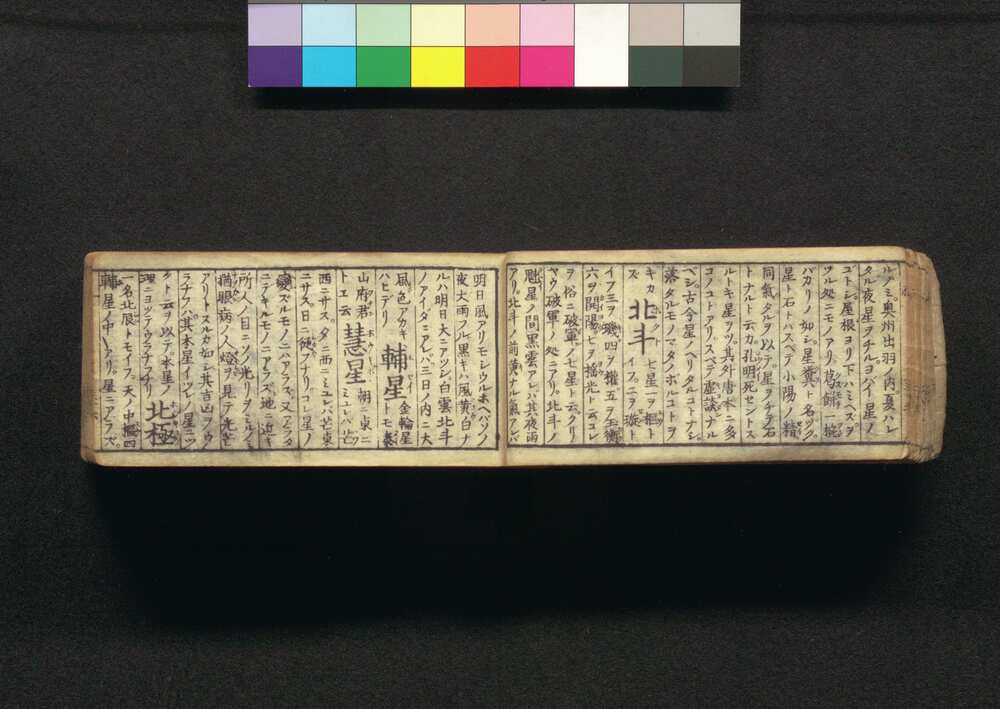 ルノミ奥州出羽ノ内夏ハレ
タル夜星ヲチルヨバイ星ノ
ユトシ屋根ヨリ下ハミスヲ
ツル処ニモノアリ葛餅一椀
バカリノ如シ星糞ト名ヅク
星ト石トハスベテ小陽ノ精
同氣タルヲ以テ星ヲチテ石
トナルト云カ孔明死セントス
ルトキ星ヲツ其外唐本ニ多
コノコトアリスベテ虚談ナル
ベシ古今星ノヘリタルコトナシ
落タルモノマタノボルコトヲ
キカズ 北斗 七星一ヲ樞トイフ二ヲ璇ト
イフ三ヲ璣四ヲ權五ヲ玉衡
六ヲ開陽七ヲ揺光ト云コレ
ヲ俗ニ破軍ノ七星ト云クリ
ヤウ破軍ノ処ニアリ。北斗ノ
魁星ノ間黒雲アレバ其夜雨
アリ。北斗ノ前黄ナル氣アレバ
明日風アリモシウルホヘバソノ
夜大雨フル黒キハ風黄白ナ
ルハ明日大ニアツシ白雲北斗
ノアイタニアレバ三日ノ内ニ大
風色アカキハヒデリ 輔星 金輪星トモ泰
山府君トモ云 彗星 朝ニ東ニミユレバ芒
西ニサス。夕ニ西ニミユレバ芒東
ニサス。日ニ徒フナリ。コレ星ノ
變ズルモノニハアラズ。又アラタ
ニデキルモノニアラズ地ニ近キ
所人ノ目ニソノ光リヲミルノミ
猶眼病ノ人燈ヲ見テ光芒
アリトスルカ如シ其吉凶ヲウ
ラナフハ其本星イヅレノ星ニヅ
クト云ヲ以テ本星ノ理ニヨツテウラナフナリ 北極
一名北辰トモイフ。天ノ中樞四
輔星ノ中ニアリ。星ニアラズ。